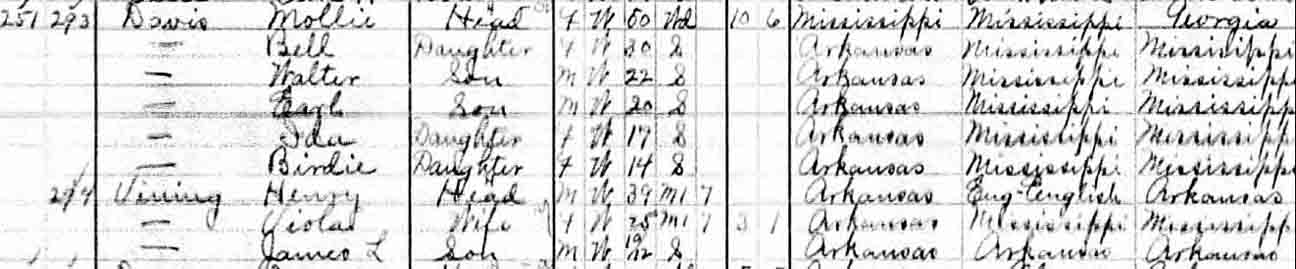 251 293 Davis Mollie Head F W 50 Wd 10 6 Mississippi Mississippi Georgia
— Bell Daughter F W 30 S Arkansas Mississippi Mississippi
— Walter Son M W 22 S Arkansas Mississippi Mississippi
— Earl Son M W 20 S Arkansas Mississippi Mississippi
— Ida Daughter F W 17 S Arkansas Mississippi Mississippi
— Birdie Daughter F W 14 S Arkansas Mississippi Mississippi
294 Vining Henry Head M W 39 M1 7 Arkansas Eng-English Arkansas
— Viola Wife F W 25 M1 7 3 1 Arkansas Mississippi Mississippi
— James L Son M W S Arkansas Arkansas Arkansas